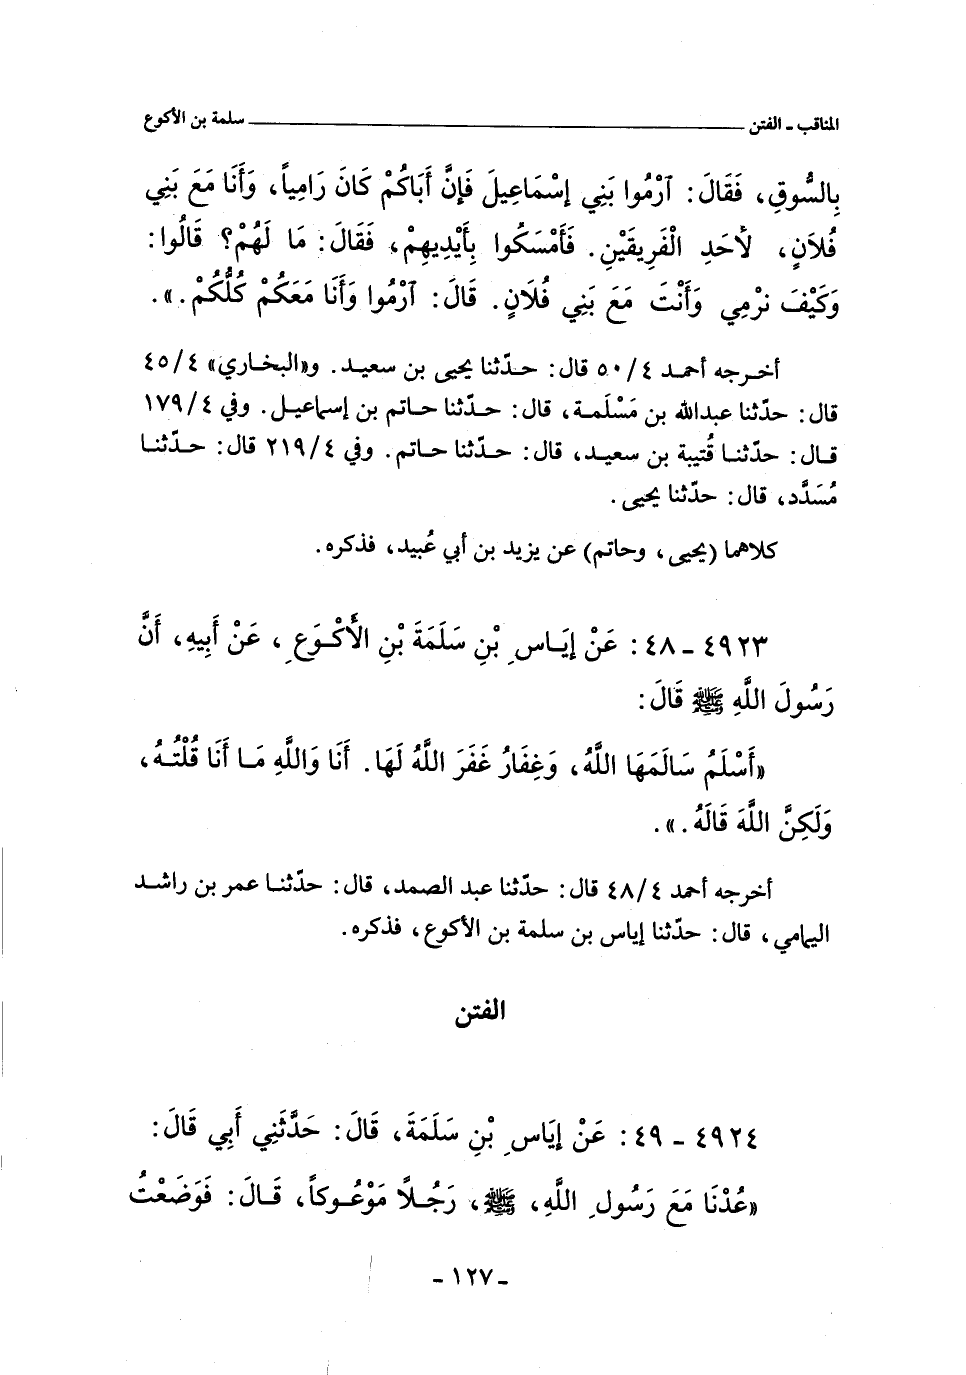 المناقب ـ الفتن ــــــــــــــــــــ سلمة بن الأكوع
بِالسُّوقِ، فَقَالَ: ٱرْمُوا بَنِي إِسْمَاعِيلَ فَإِنَّ أَبَاكُمْ كَانَ رَامِياً، وَأَنَا مَعَ بَنِي
فُلاَنٍ، لأَحَدِ الْفَرِيقَيْنِ. فَأَمْسَكُوا بِأَيْدِيهِمْ، فَقَالَ: مَا لَهُمْ؟ قَالُوا:
وَكَيْفَ نَرْمِي وَأَنْتَ مَعَ بَنِي فُلَانٍ. قَالَ: ٱرْمُوا وَأَنَا مَعَكُمْ كُلُّكُمْ.».
أخرجه أحمد ٤/٥٠ قال: حدّثنا يحيى بن سعيد. و«البخاري» ٤/٤٥
قال: حدّثنا عبدالله بن مَسْلَمة، قال: حدّثنا حاتم بن إسماعيل. وفي ٤/١٧٩
قال: حدّثنا قُتيبة بن سعيد، قال: حدّثنا حاتم. وفي ٤/٢١٩ قال: حدّثنا
مُسَدَّد، قال: حدّثنا يحيى.
كلاهما (يحيى، وحاتم) عن يزيد بن أبي عُبيد، فذكره.
٤٩٢٣ ـ ٤٨: عَنْ إِيَاسِ بْنِ سَلَمَةَ بْنِ الأَكْوَعِ، عَنْ أَبِيهِ، أَنَّ
رَسُولَ اللَّهِ ﷺ قَالَ:
«أَسْلَمُ سَالَمَهَا اللَّهُ، وَغِفَارُ غَفَرَ اللَّهُ لَهَا. أَنَا وَاللَّهِ مَا أَنَا قُلْتُهُ،
وَلَكِنَّ اللَّهَ قَالَهُ.».
أخرجه أحمد ٤/٤٨ قال: حدّثنا عبد الصمد، قال: حدّثنا عمر بن راشد
اليمامي، قال: حدّثنا إياس بن سلمة بن الأكوع، فذكره.
الفتن
٤٩٢٤ ـ ٤٩: عَنْ إِيَاسِ بْنِ سَلَمَةَ، قَالَ: حَدَّثَنِي أَبِي قَالَ:
«عُدْنَا مَعَ رَسُولِ اللَّهِ، ﷺ، رَجُلاً مَوْعُوكاً، قَالَ: فَوَضَعْتُ
ـ ١٢٧ ـ